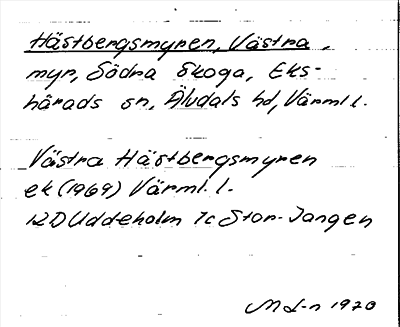 Hästbergsmyren, Västra,
myr, Södra Skoga, Eks-
härads sn, Älvdals hd, Värml l.
Västra Hästbergsmyren
ek (1969) Värml. l.
12D Uddeholm 7c Stor-Jangen
M L-n 1970